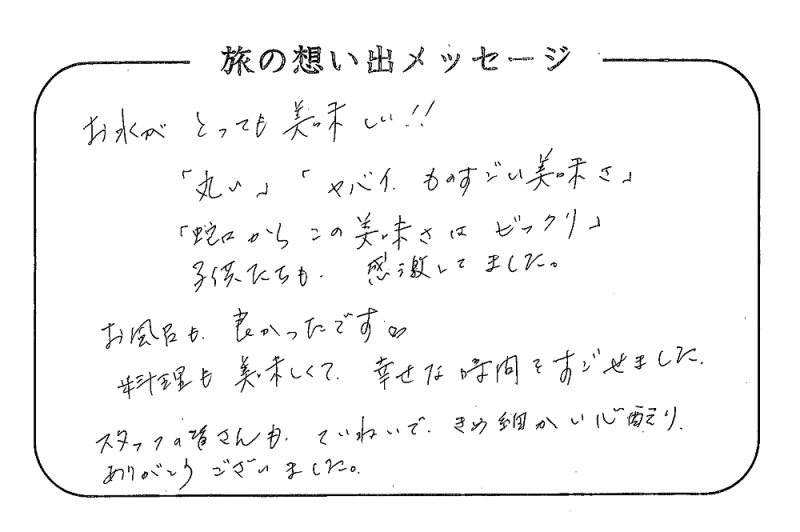 旅の想い出メッセージ
お水が とっても 美味しい!!
「丸い」「ヤバイ、ものすごい美味さ」
「蛇口から この美味さは ビックリ」
子供たちも、感激してました。
お風呂も、良かったです
料理も美味しくて、幸せな時間をすごせました。
スタッフの皆さんも、ていねいで、きめ細かい心配り、
ありがとうございました。